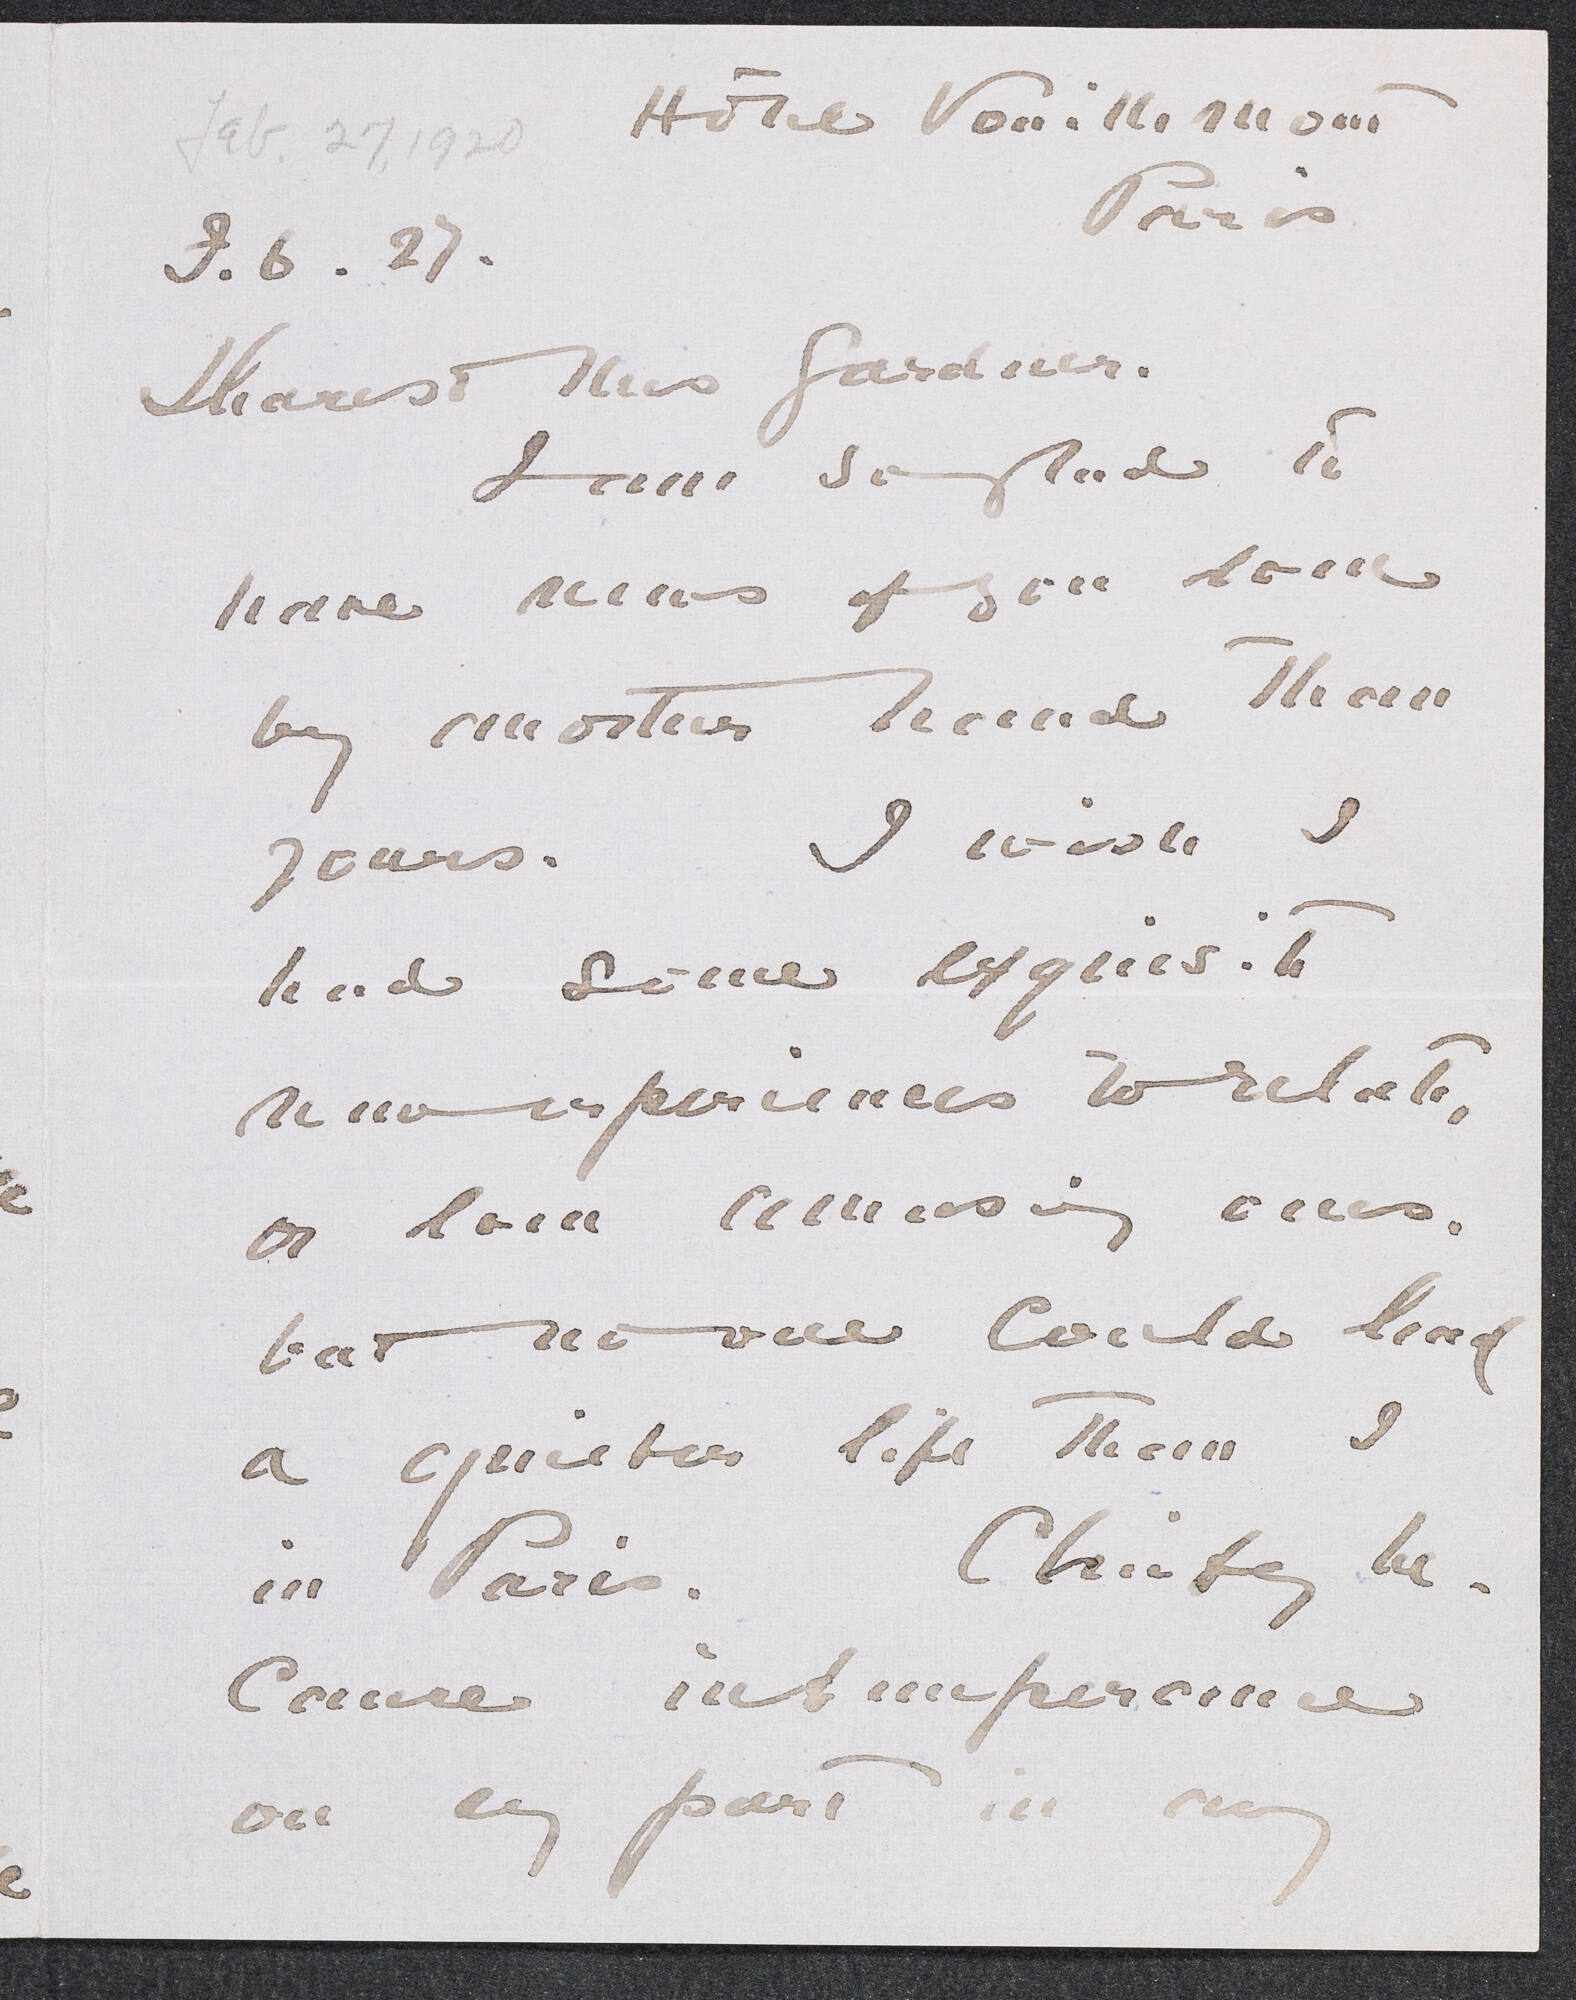 Feb. 27, 1920
Hôtel Vouillemont
Paris
F.b. 27.
Dearest Mrs Gardner.
I am so glad to
have news of you even
by another hand than
yours. I wish I
had some exquisite
new experiences to relate,
or even amusing ones.
but no one could lead
a quieter life than I
in Paris. Chiefly be-
cause intemperance
on my part in any